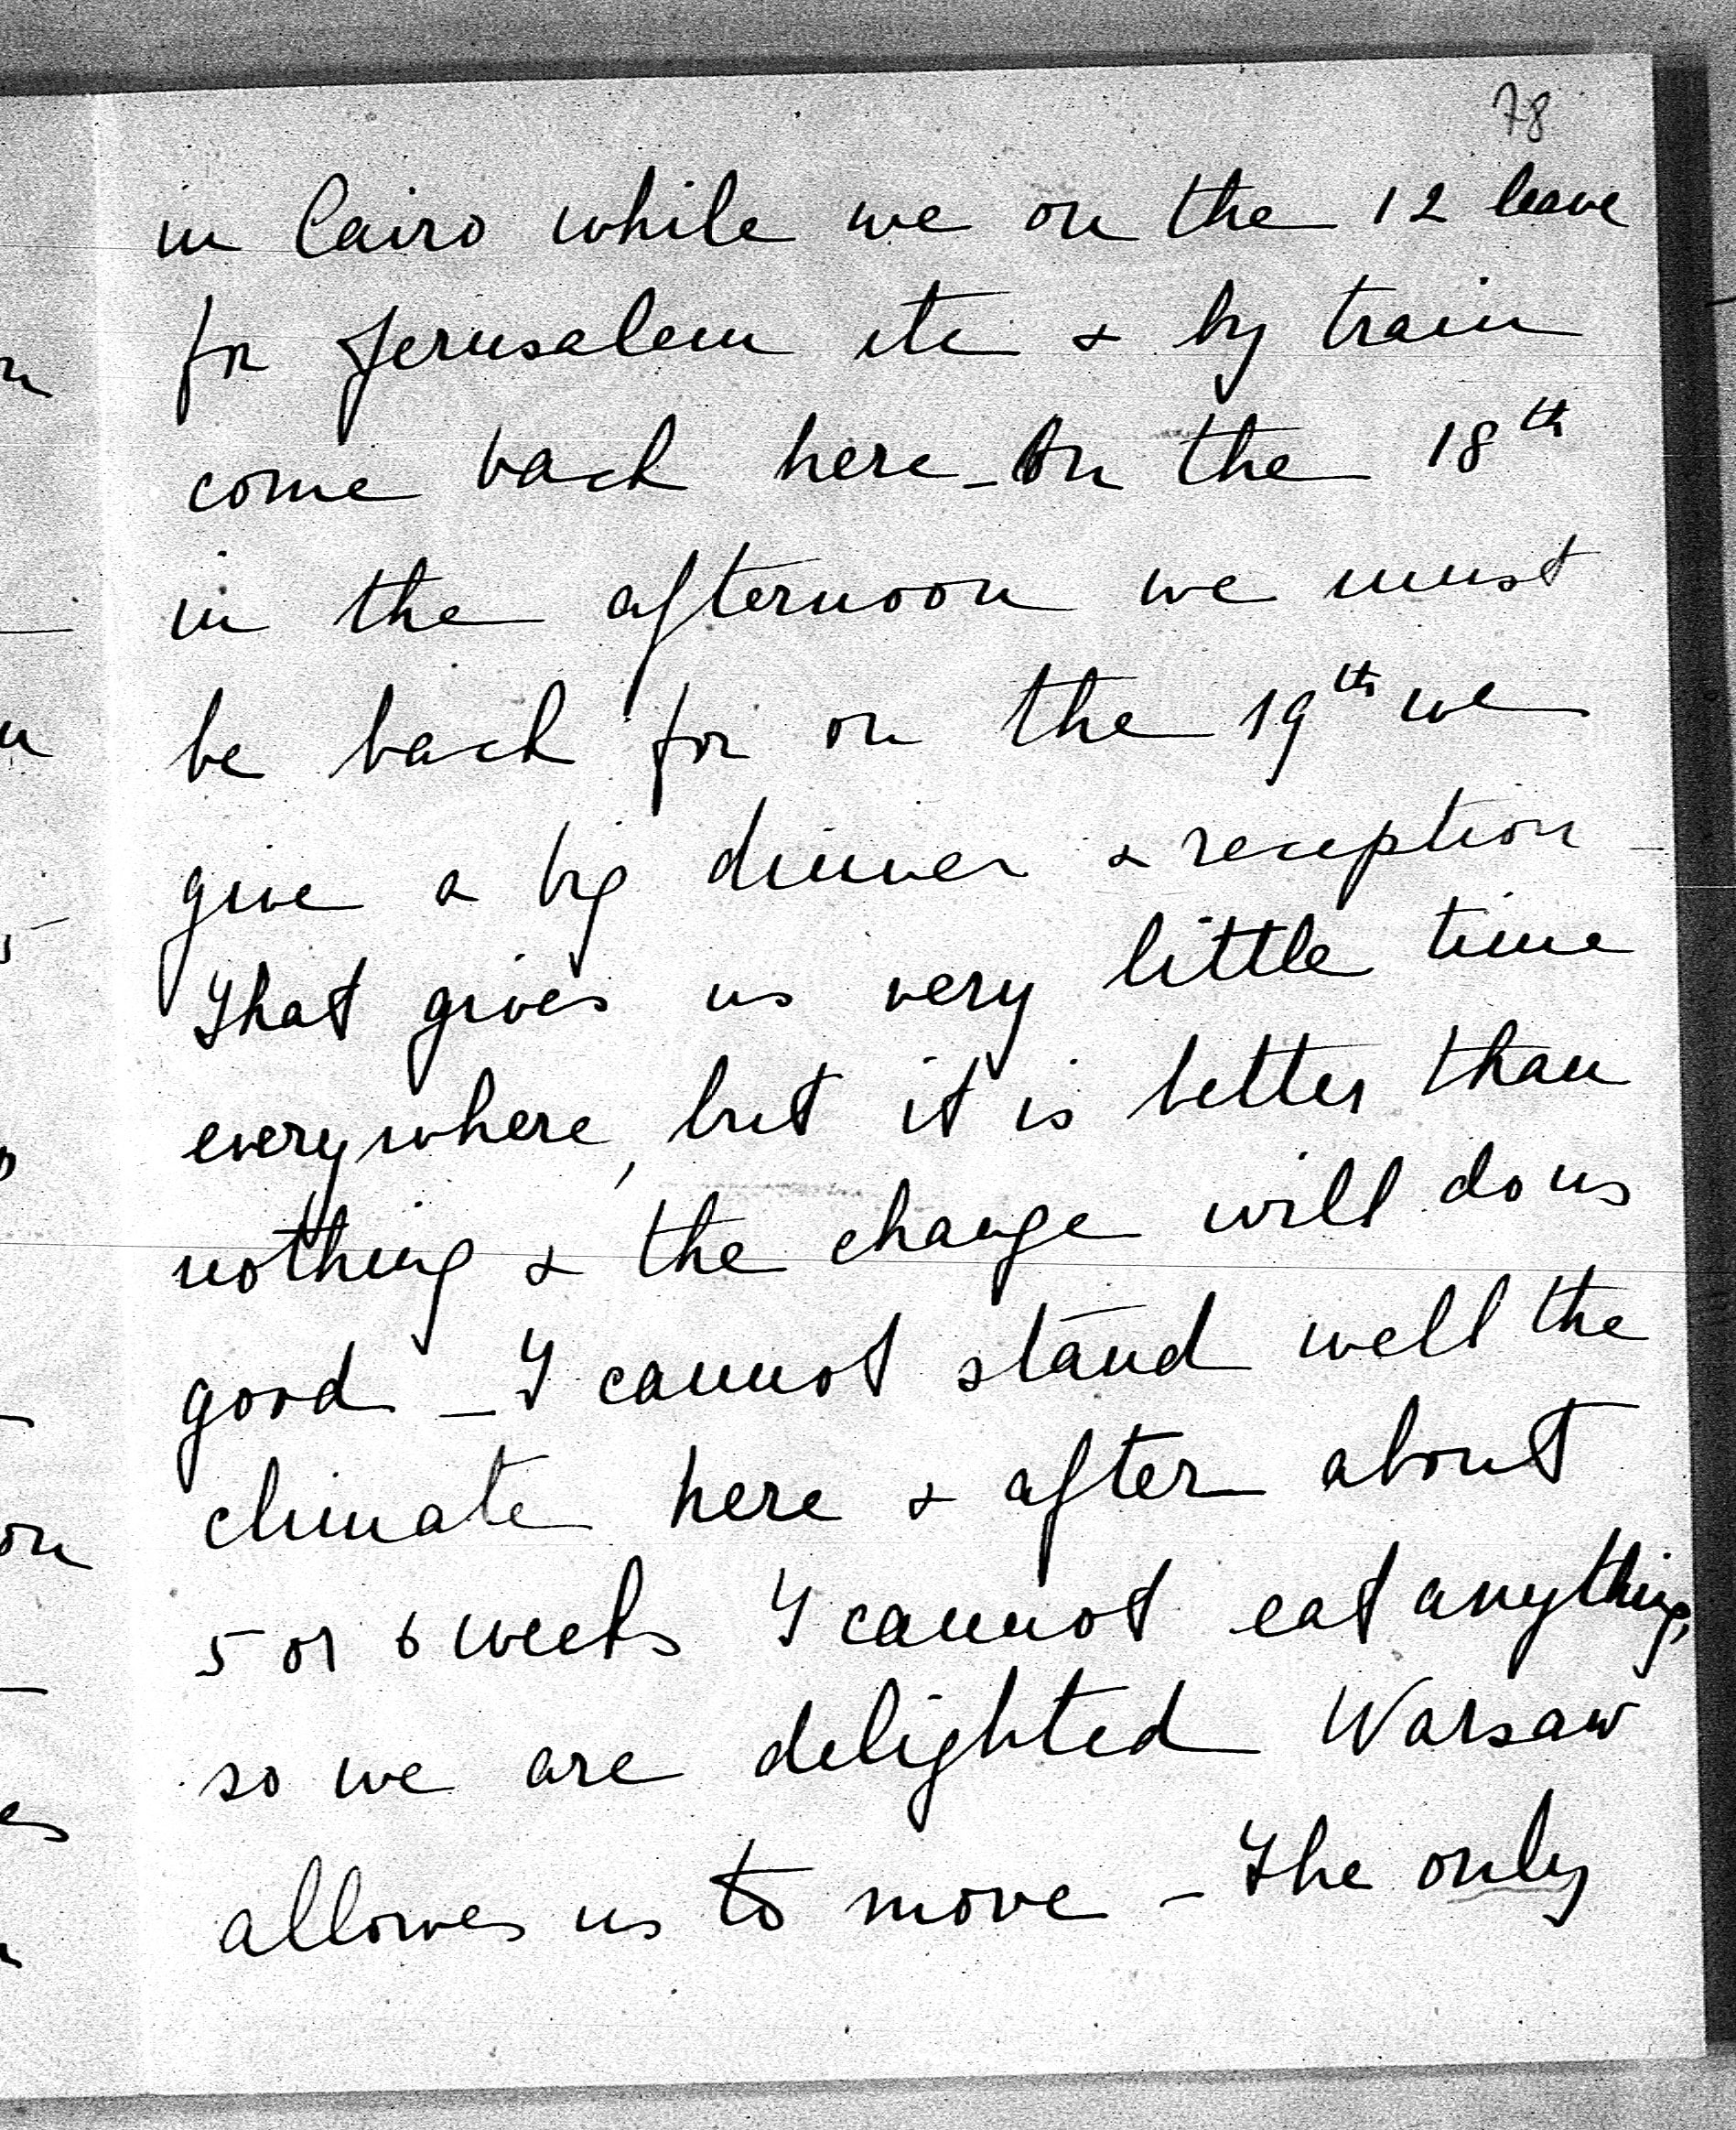 78
in Cairo while we on the 12 leave
for Jerusalem etc & by train
come back here _ On the 18th
in the afternoon we must
be back for on the 19th we
give a big dinner & reception
That gives us very little time
everywhere, but it is better than
nothing & the change will do us
good _ I cannot stand well the
climate here & after about
5 or 6 weeks I cannot eat anything,
so we are delighted Warsaw
allowes us to move - The only